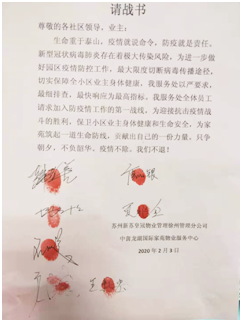 请战书
尊敬的各社区领导，业主：
生命重于泰山，疫情就是命令，防疫就是责任。
新型冠状病毒肺炎存在着极大传染风险，为进一步做
好园区疫情防控工作，最大限度切断病毒传播途径，
切实保障全小区业主身体健康，我服务处以严要求，
最细排查，最快响应为最高指标。我服务处全体员工
请求加入防疫情工作的第一战线，为迎接抗击疫情战
斗的胜利，保卫小区业主身体健康和生命安全，为家
庭筑起一道生命防线，贡献出自己的一份力量。只争
朝夕，不负韶华，疫情不除，我们不退！
苏州新苏皇冠物业管理徐州管理分公司
国际家苑物业服务中心
2020 年 2 月 3 日